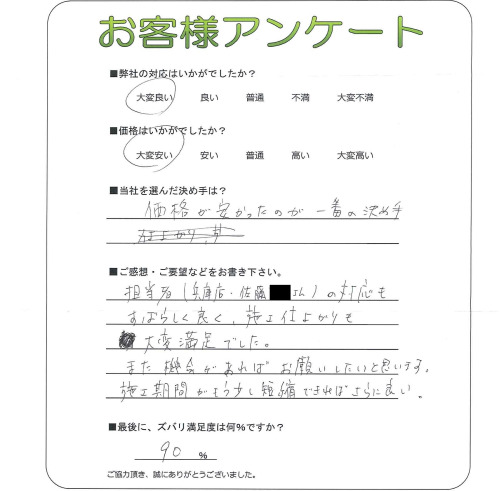 お客様アンケート
■弊社の対応はいかがでしたか？
大変良い 良い 普通 不満 大変不満
■価格はいかがでしたか？
大変安い 安い 普通 高い 大変高い
■当社を選んだ決め手は？
価格が安かったのが一番の決め手
■ご感想・ご要望などをお書き下さい。
担当者(兵庫店・佐藤 さん)の対応も
すばらしく良く、施工仕上がりも
大変満足でした。
また機会があればお願いしたいと思います。
施工期間がもう少し短縮できればさらに良い。
■最後に、ズバリ満足度は何%ですか？
90 %
ご協力頂き、誠にありがとうございました。